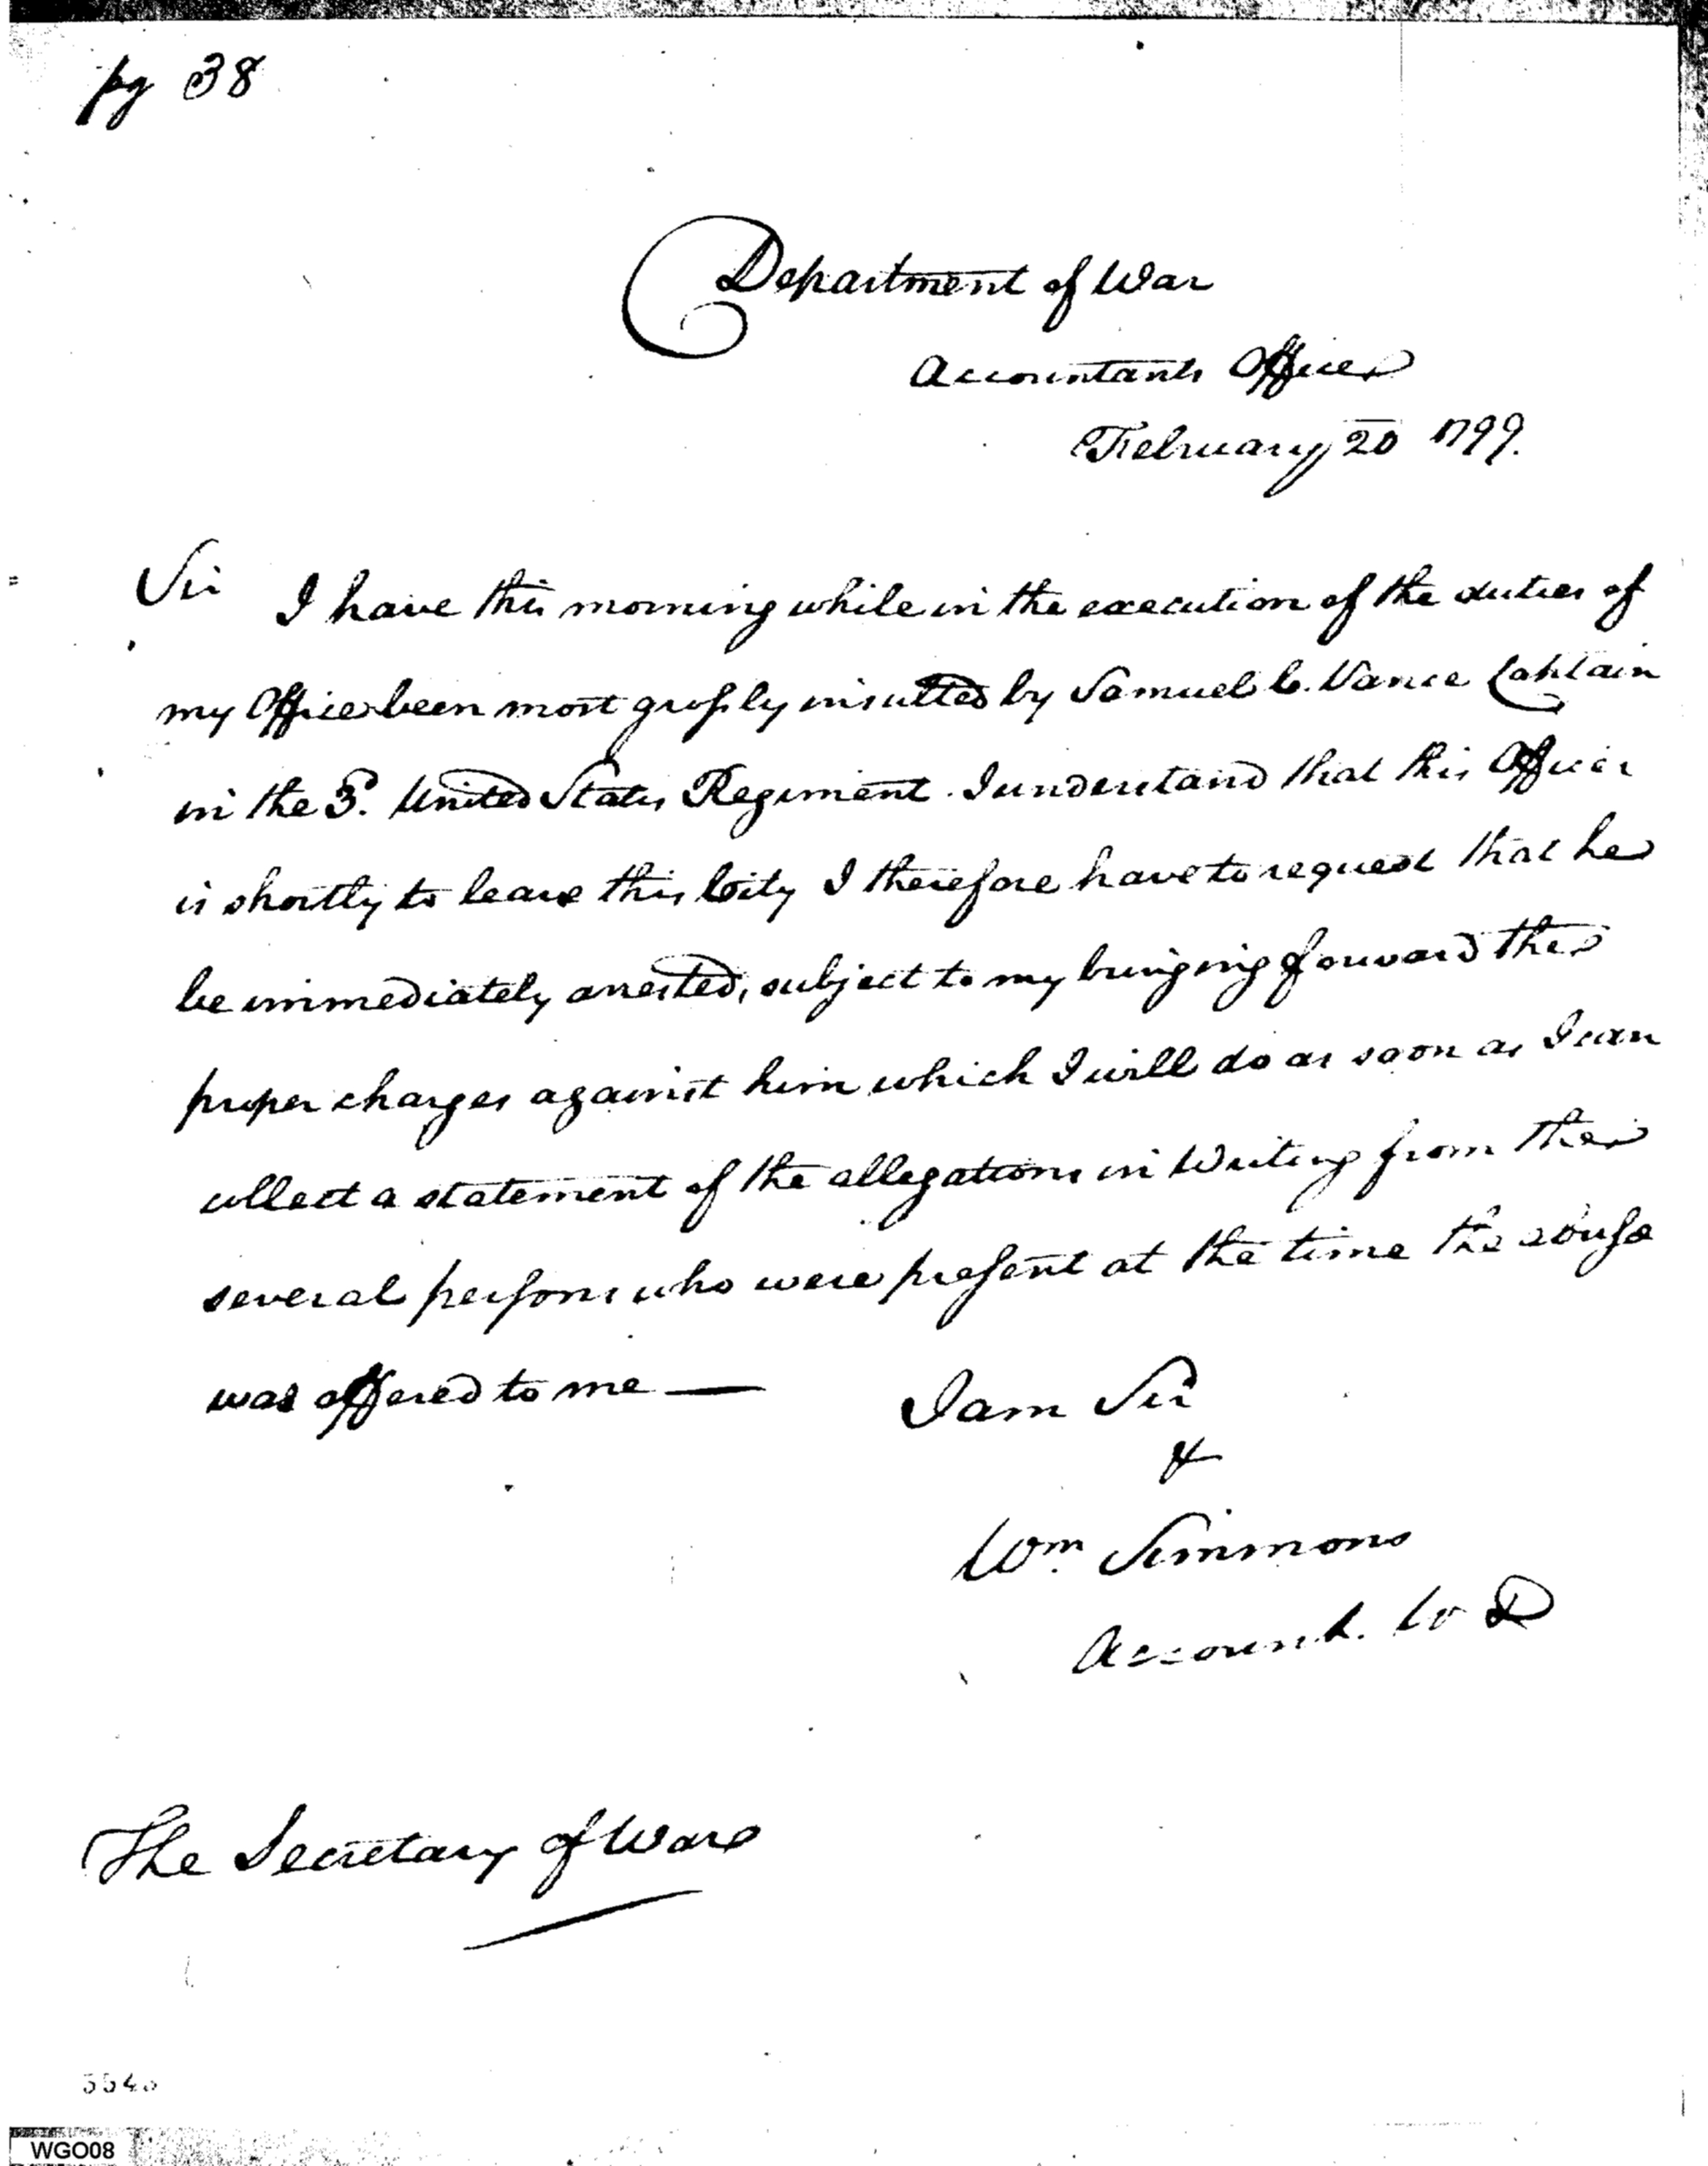 pg 38
Department of War
Accountants Office
February 20 1799.
Sir I have this morning while in the execution of the duties of
my Office been most grossly insulted by Samuel C. Vance Captain
in the 3d. United States Regiment. I understand that this Officer
is shortly to leave this City I therefore have to request that he
be immediately arrested, subject to my bringing forward the
proper charges against him which I will do as soon as I can
collect a statement of the allegations in Writing from the
several persons who were present at the time the abuse
was offered to me —
I am Sir
&
Wm Simmons
Account. W D
The Secretary of War
WGO08